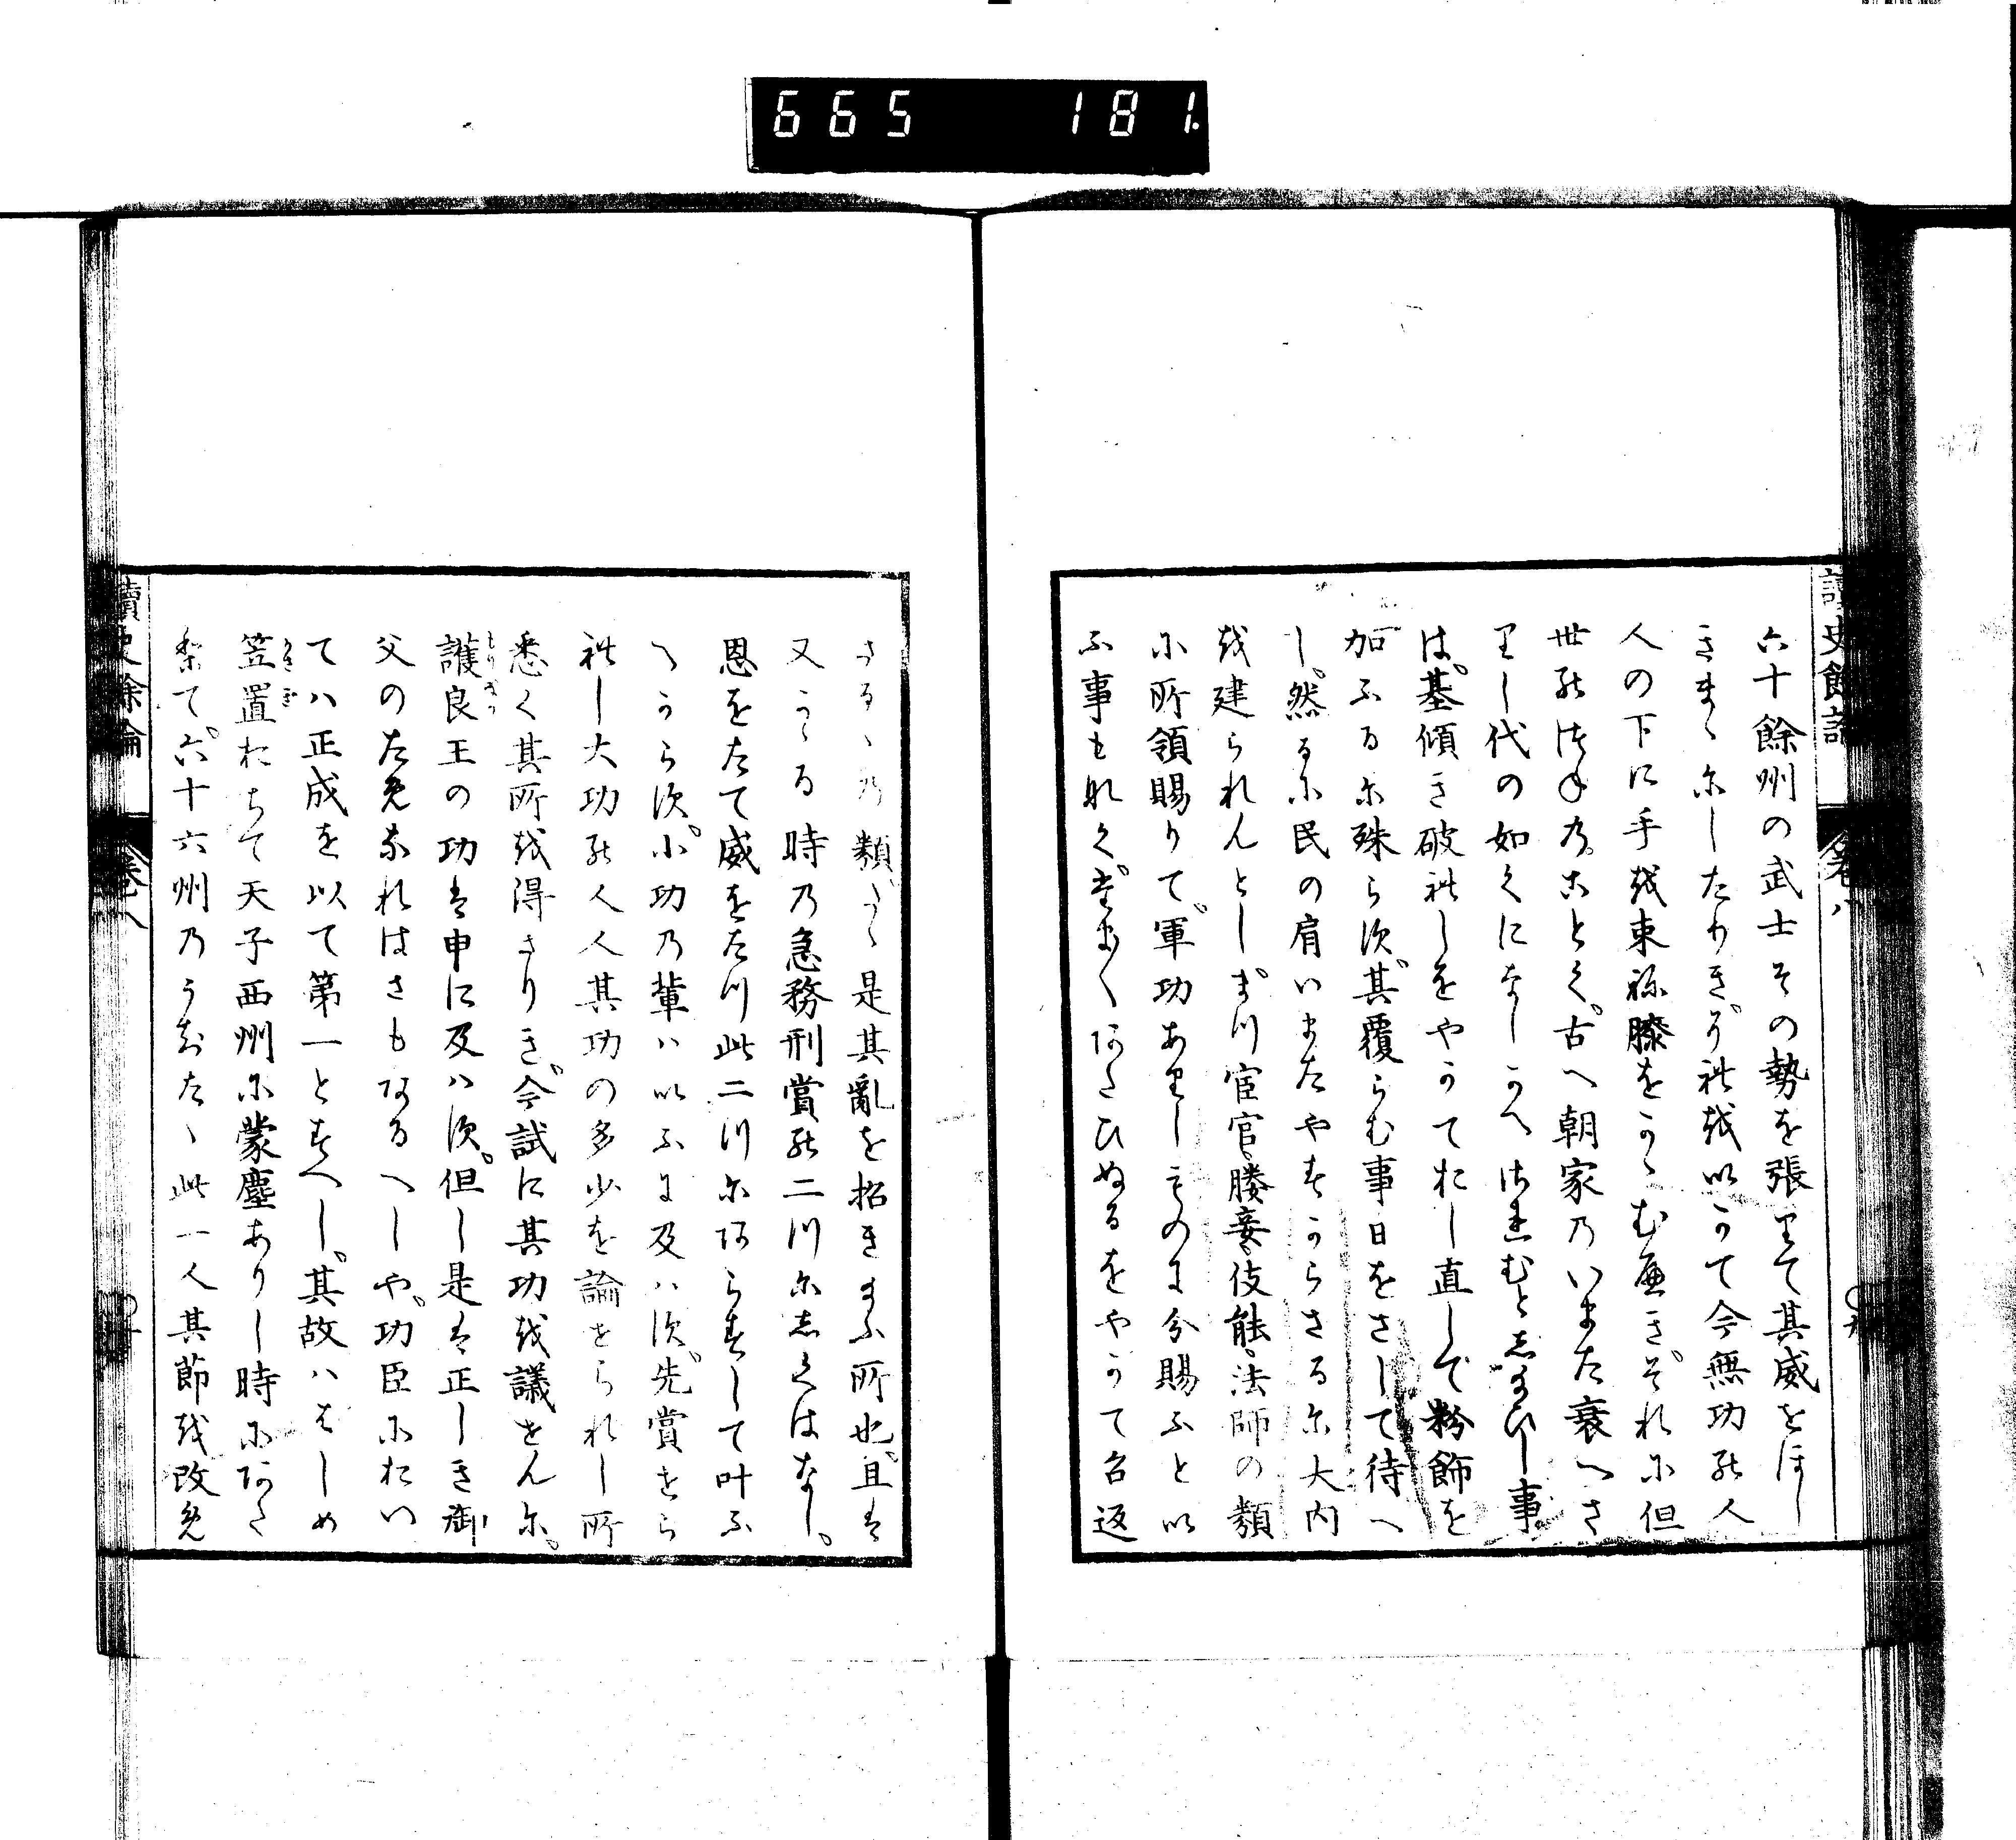 665 181
六十餘州の武士その勢を張りて其威をほし
きまゝにしたりき。それを以かて今無功の人
人の下に手を束ね膝をかゝむへき。それに但
世のつねのことく。古へ朝家のいまた衰へさ
りし代の如くになしかへされむとしたまひし事
は。基傾き破れしをやかておし直して粉飾を
加ふるに殊らす。其覆らむ事日をさして待へ
し。然るに民の肩いまたやすからさるに大内
を建られんとし。まつ宦官、媵妾、伎能、法師の類
に所領賜りて。軍功ありしものに分賜ふとい
ふ事もなく。たま〱あたひぬるをやかて召返
さるゝの類。かゝる是其亂を招きまふ所也。且は
又かゝる時の急務刑賞の二つにしくはなし。
恩をたて威をたつ此二つにあらすして叶ふ
へからす。小功の輩はいふに及はす。先賞せら
れし大功の人人其功の多少を論せられし所
悉く其所を得さりき。今試に其功を議せんに。
護良王の功は申に及はす。但し是は正しき御
もりなか
父のためなれはさもあるへしや。功臣におい
ては正成を以て第一とすへし。其故ははしめ
笠置おちて天子西州に蒙塵ありし時にあた
かさぎ
りて。六十六州のうちたゝ此一人其節を改め
讀史餘論 卷八
讀史餘論 卷八